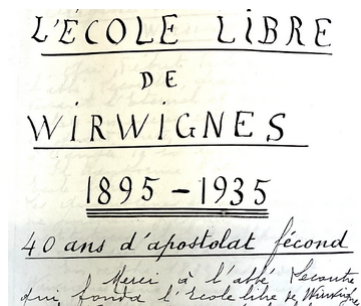 L'ÉCOLE LIBRE
DE
WIRWIGNES
1895 - 1935
40 ans d'apostolat fécond
Merci à l'abbé Lecomte
qui fonda l'école libre de Wirwignes